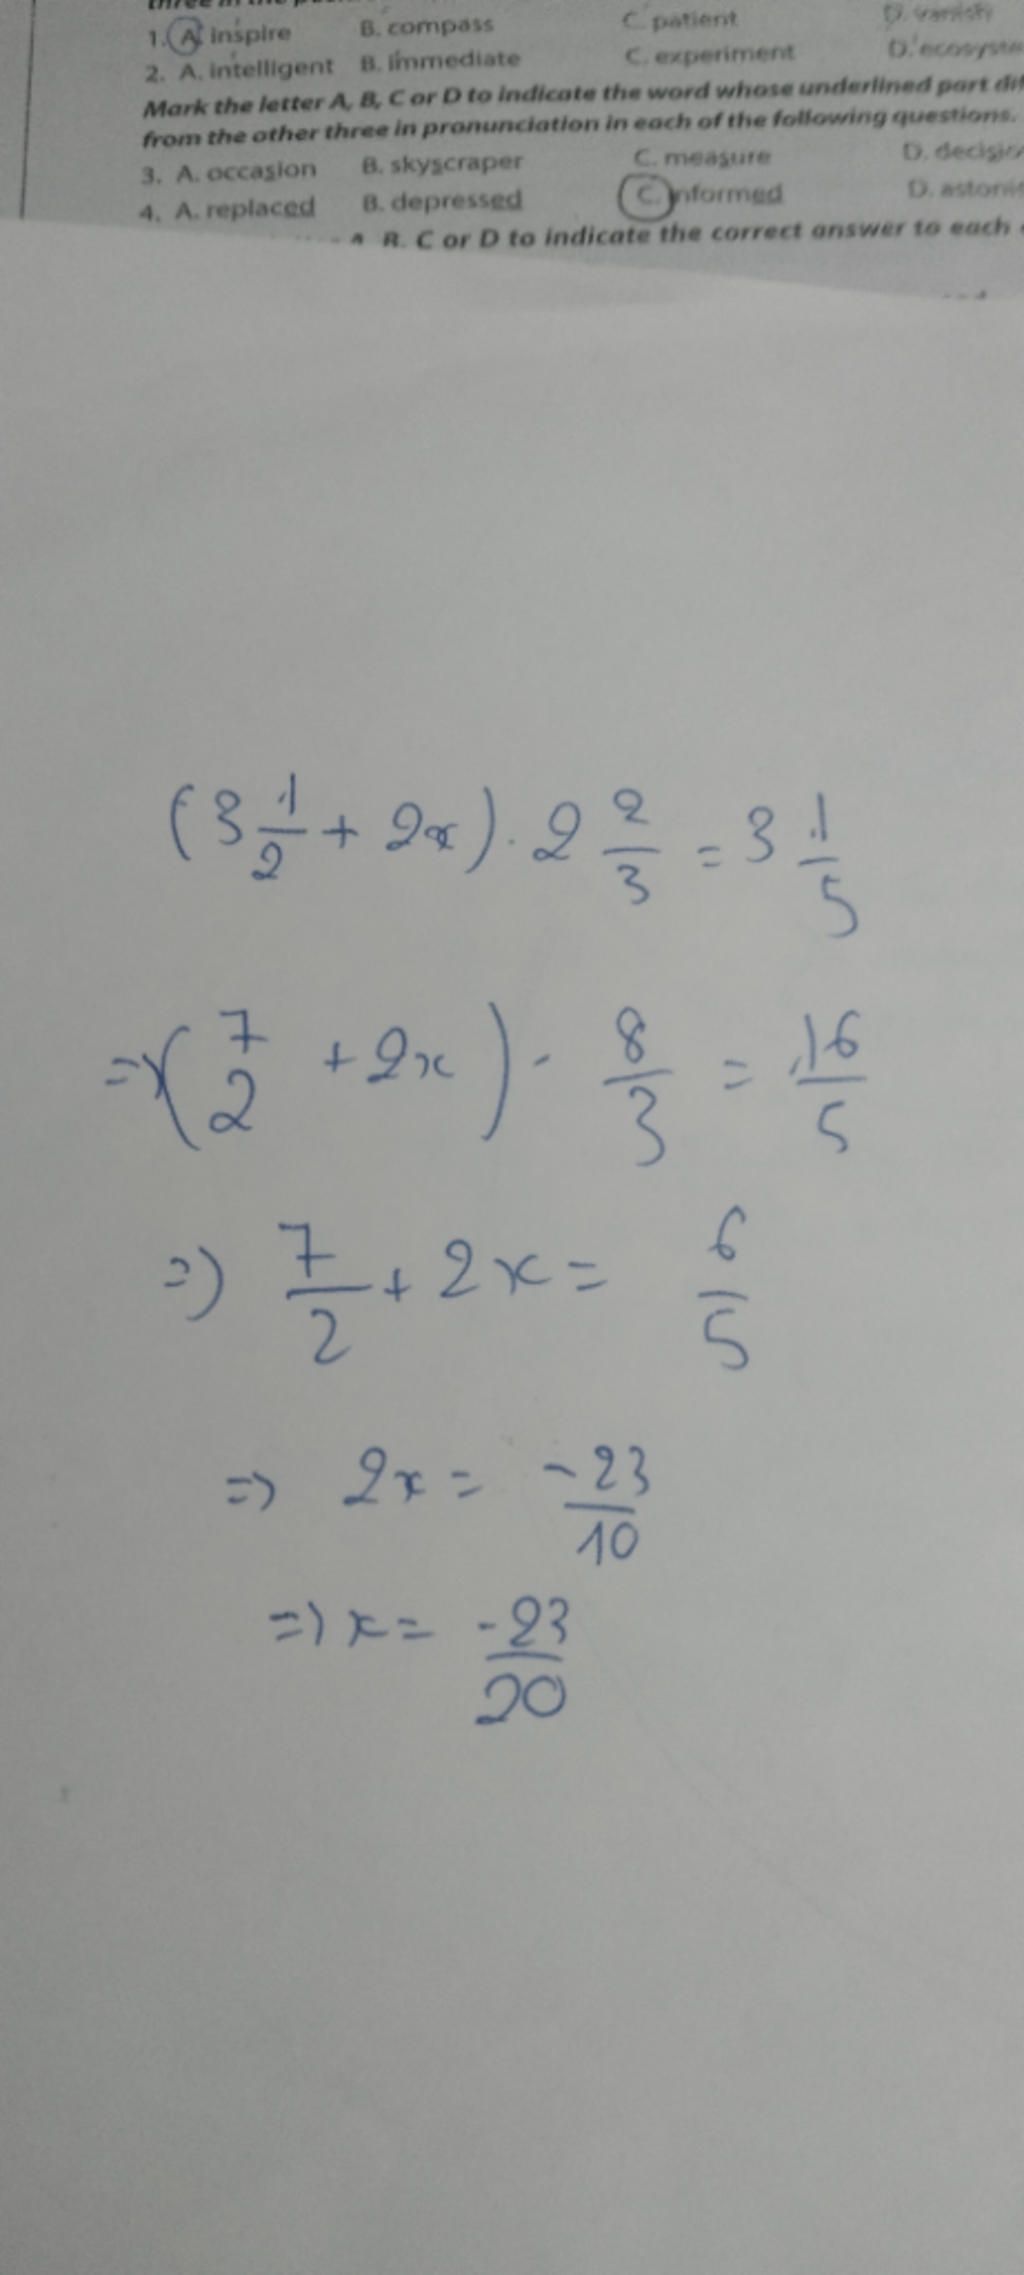 1. A. inspire B. compass C. patient D. vanish
2. A. intelligent B. immediate C. experiment D. ecosyste
Mark the letter A, B, C or D to indicate the word whose underlined part di
from the other three in pronunciation in each of the following questions.
3. A. occasion B. skyscraper C. measure D. decisio
4. A. replaced B. depressed C. informed D. astonis
A, B, C or D to indicate the correct answer to each
(3 1/2 + 2x) . 2 2/3 = 3 1/5
=> (7/2 + 2x) . 8/3 = 16/5
=> 7/2 + 2x = 6/5
=> 2x = -23/10
=> x = -23/20